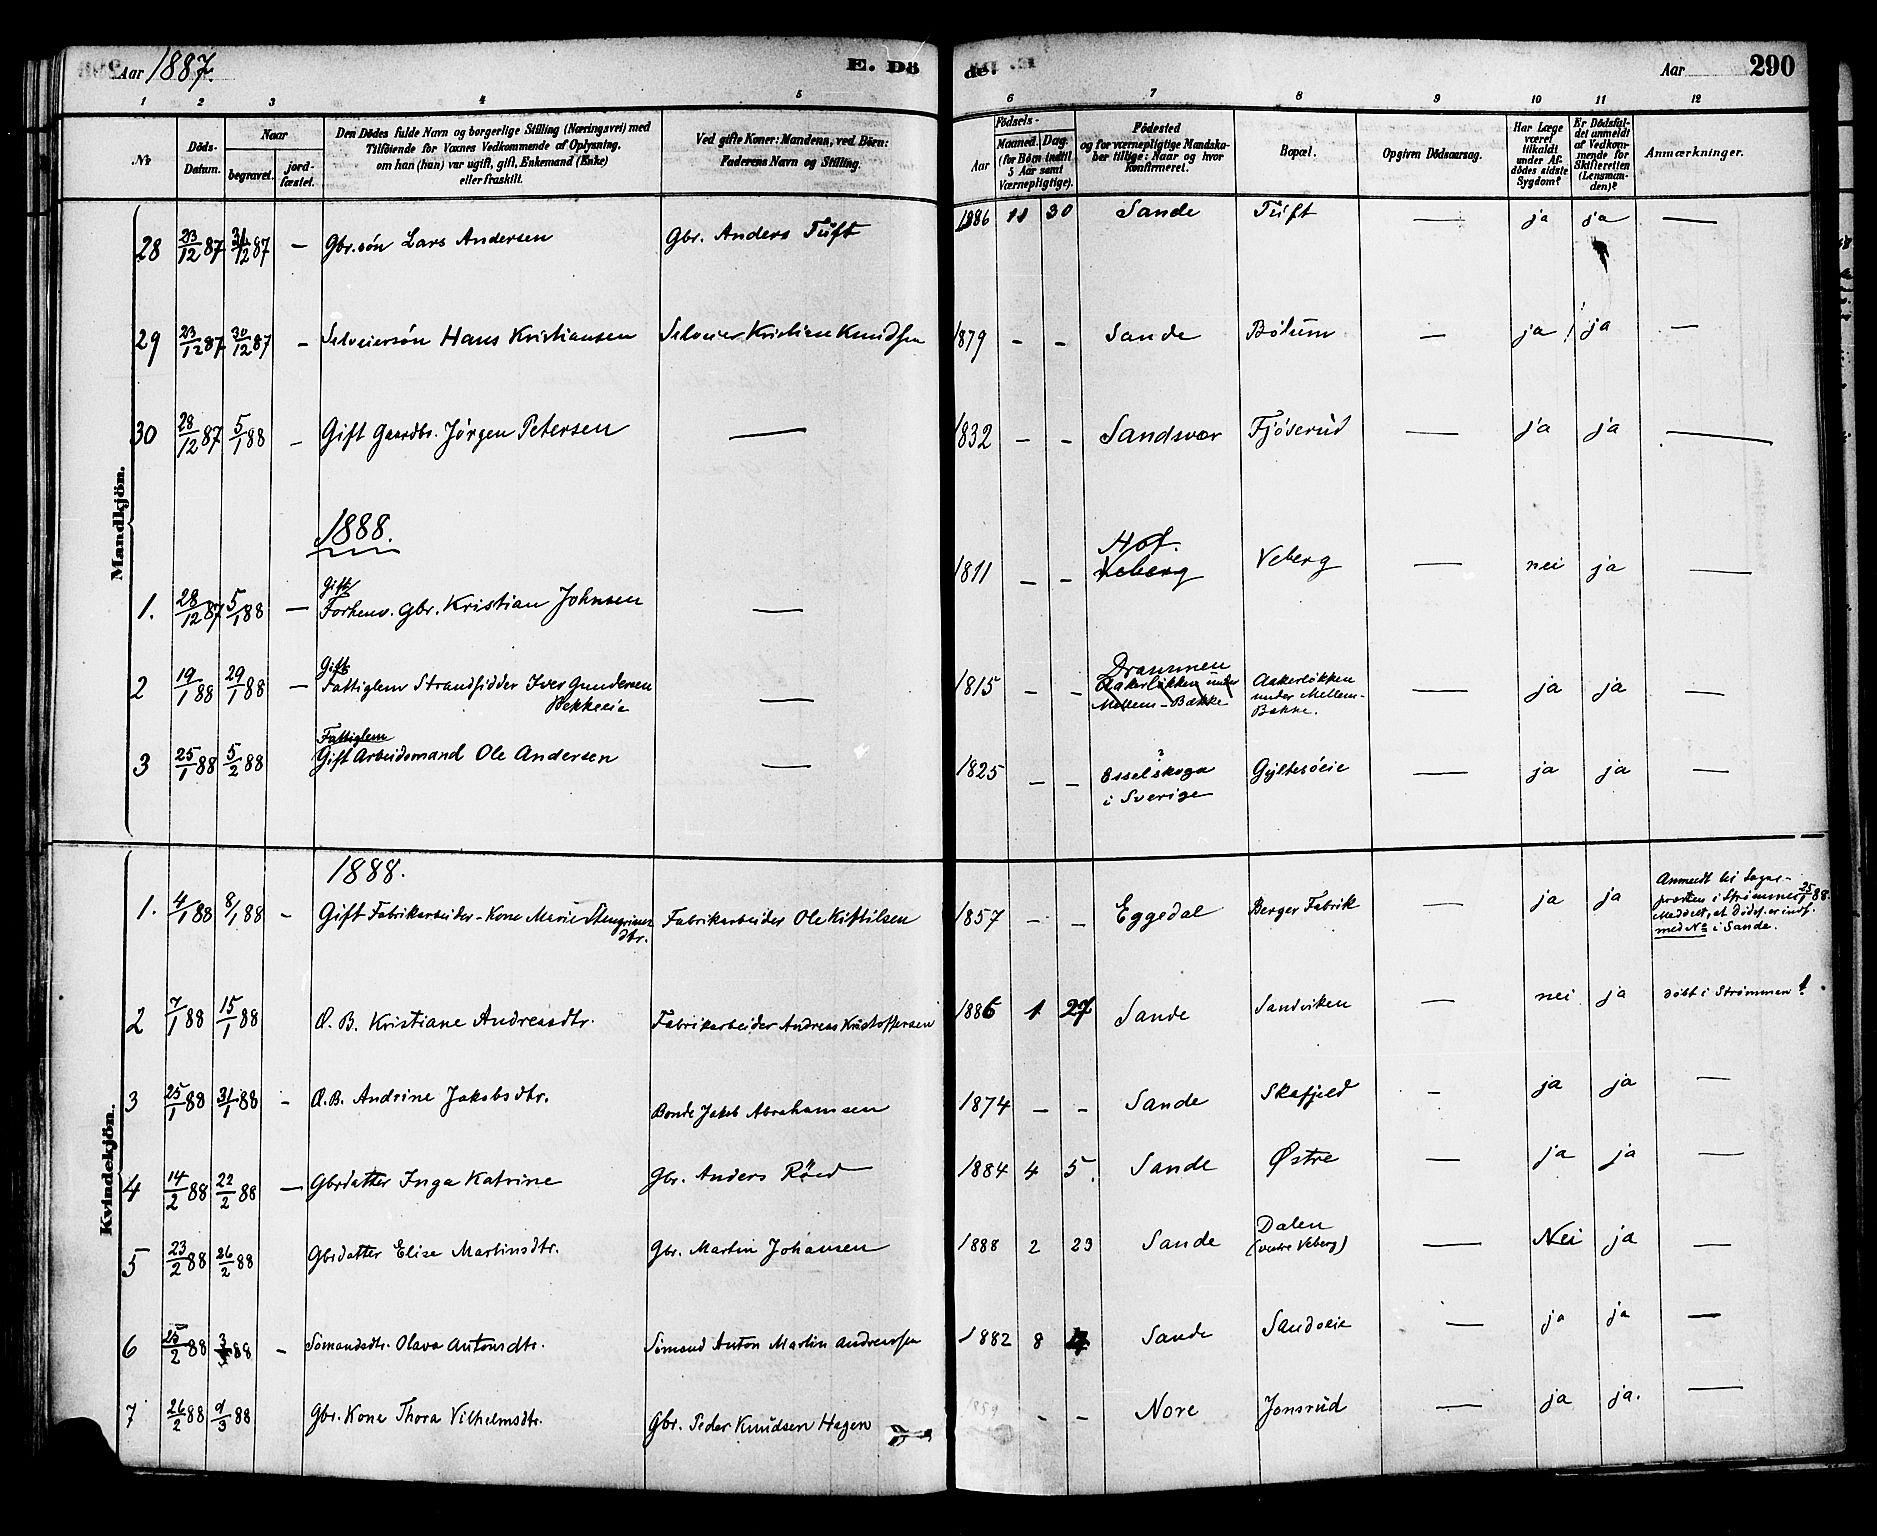 Aar 1887.
E. Dö
de.
Aar
290
1 2 3 4 5 6 7 8 9 10 11 12
No
Döds-Datum.
Naar
begravet.
jord-fæstet.
Den Dödes fulde Navn og borgerlige Stilling (Næringsvei) med
Tilföiende for Voxnes Vedkommende af Oplysning,
om han (hun) var ugift, gift, Enkemand (Enke)
eller fraskilt.
Ved gifte Koner: Mandens, ved Börn:
Faderens Navn og Stilling.
Födsels-
Aar
Maaned. Dag.
(for Börn indtil
5 Aar samt
Værnepligtige).
Födested
og for værnepligtige Mandska-
ber tillige: Naar og hvor
konfirmeret.
Bopæl.
Opgiven Dödsaarsag.
Har Læge
været
tilkaldt
under Af-
dödes sidste
Sygdom?
Er Dödsfal-
det anmeldt
af Vedkom-
mende for
Skifteretten
(Lensman-
den)?
Anmærkninger.
Mandkjön.
28 23/12 87 31/12 87 — Gbr.søn Lars Andersen Gbr. Anders Tuft 1886 11 30 Sande Tuft — ja ja —
29 23/12 87 30/12 87 — Selveiersøn Hans Kristiansen Selveier Kristian Knudsen 1879 — — Sande Bølum — ja ja —
30 28/12 87 5/1 88 — Gift Gaardbr. Jørgen Petersen — 1832 — — Sandsvær Fjøserud — ja ja —
1888.
1. 28/12 87 5/1 88 — Gift Forhenv. Gbr. Kristian Johnsen — 1811 — — Hof. Veberg Veberg — nei ja —
2 19/1 88 29/1 88 — Gift Fattiglem Strandsidder Iver Gundersen Bekkeeie — 1815 — — Drammen Aakerløkken under Mellem-Bakke Aakerløkken under Mellem-Bakke. — ja ja —
3 25/1 88 5/2 88 Fattiglem Gift Arbeidsmand Ole Andersen — 1825 — — Esselskoga i Sverige Gyltesøeie — ja ja —
Kvindekjön.
1888.
1. 4/1 88 8/1 88 — Gift Fabrikarbeider-Kone Marie Stengrimsdtr. Fabrikarbeider Ole Kittilsen 1857 — — Eggedal Berger Fabrik — ja ja Anmeldt til Sognepræsten i Strømmen 25/1 88. Meddelt, at dødsf. er indf. med No i Sande.
2 7/1 88 15/1 88 Æ. B. Kristiane Andreasdtr. Fabrikarbeider Andreas Kristoffersen 1886 1 27 Sande Sandviken — nei ja døbt i Strømmen!
3 25/1 88 31/1 88 — Æ. B. Andrine Jakobsdtr. Bonde Jakob Abrahamsen 1874 — — Sande Skafjeld — ja ja —
4 14/2 88 22/2 88 — Gbrdatter Inga Katrine Gbr. Anders Røed 1884 4 5. Sande Østre — ja ja —
5 23/2 88 26/2 88 Gbrdatter Elise Martinsdtr. Gbr. Martin Johansen 1888 2 23 Sande Dalen (vestre Veberg) — Nei ja —
6 25/2 88 3/3 88 — Sømandsdtr. Olava Antonsdtr. Sømand Anton Martin Andreassen 1882 8 4 Sande Sandøeie — ja ja —
7 26/2 88 9/3 88 Gbr. Kone Thora Vilhelmsdtr. Gbr. Peder Knudsen Hagen 1859 — — Nore Jonsrud — ja ja. —